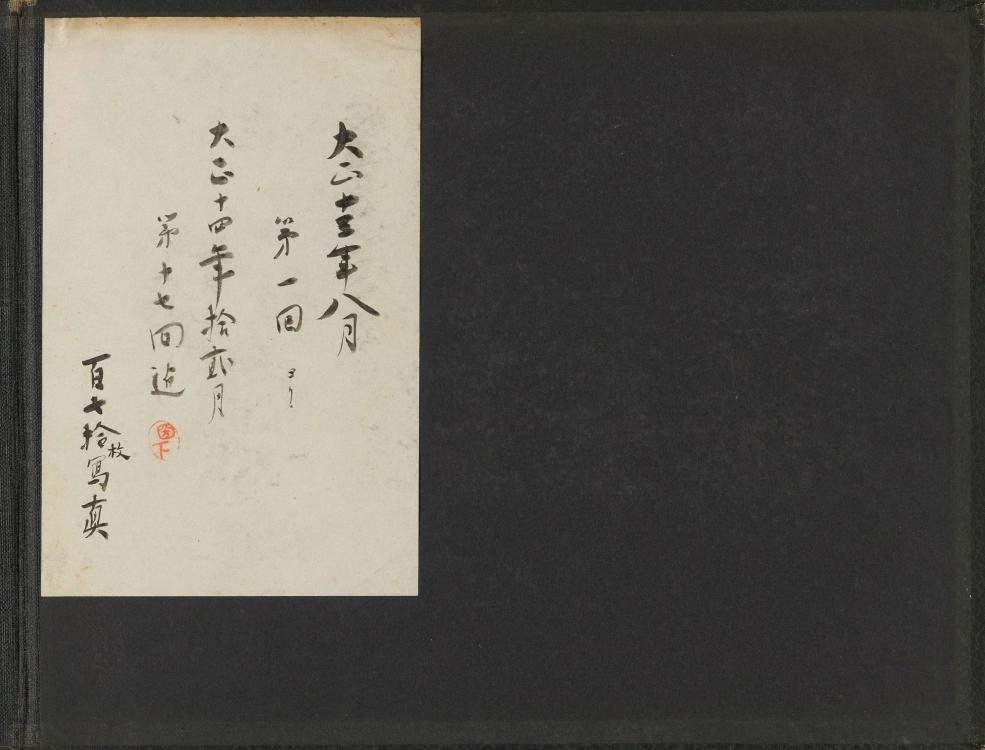 大正十三年八月
第一回ヨリ
大正十四年拾弐月
第十七回迠
百七拾枚写真